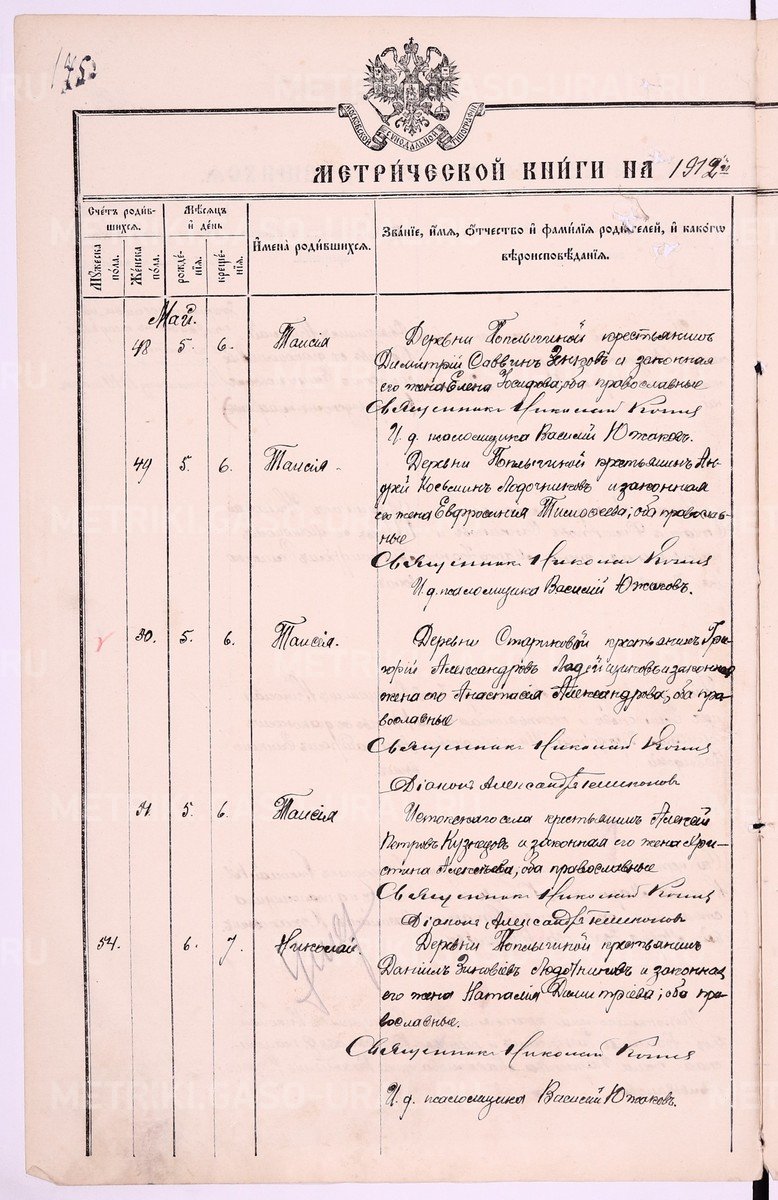 175
МОСКОВСКОЙ СѴНОДАЛЬНОЙ ТИПОГРАФІИ
МЕТРИ́ЧЕСКОЙ КНИ́ГИ НА 1912
Сче́тъ роди́в-
шихся.
Мѣ́сяцъ
и́ день
И҆мена̀ роди́вшихся.
Зва́ніе, и҆́мя, ѻ҆́тчество и҆ фами́лія роди́телей, и҆ како́гѡ
вѣроисповѣ́данія.
Мꙋ́жеска
по́ла.
Же́нска
по́ла.
рожде́-
нія.
креще́-
нія.
Май.
48 5. 6. Таисія
Деревни Топлыгиной крестьянинъ
Димитрій Саввинъ Зенковъ и законная
его жена Елена Іосифова, оба православные
Священникъ Николай
И. д. псаломщика Василій Южаковъ.
49 5. 6. Таисія
Деревни Топлыгиной крестьянинъ Ан-
дрей Косьминъ Лодочниковъ и законная
его жена Евфросинія Тимофеева; оба православ-
ные
Священникъ Николай
И. д. псаломщика Василій Южаковъ.
50. 5. 6. Таисія.
Деревни Стариковой крестьянинъ Гри-
горій Александровъ Ладейщиковъ и законная
жена его Анастасія Александрова, оба пра-
вославные
Священникъ Николай
Діаконъ Александръ
51. 5. 6. Таисія
Истокскаго села крестьянинъ Алексѣй
Петровъ Кузнецовъ и законная его жена Хри-
стина Алексѣева, оба православные
Священникъ Николай
Діаконъ Александръ
54. 6. 7. Николай.
умер
Деревни Топлыгиной крестьянинъ
Даніилъ Зиновіевъ Лодочниковъ и законная
его жена Наталія Димитріева; оба пра-
вославные.
Священникъ Николай
И. д. псаломщика Василій Южаковъ.